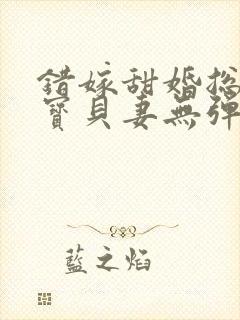 错嫁甜婚总
寶貝妻無彈
藍之焰